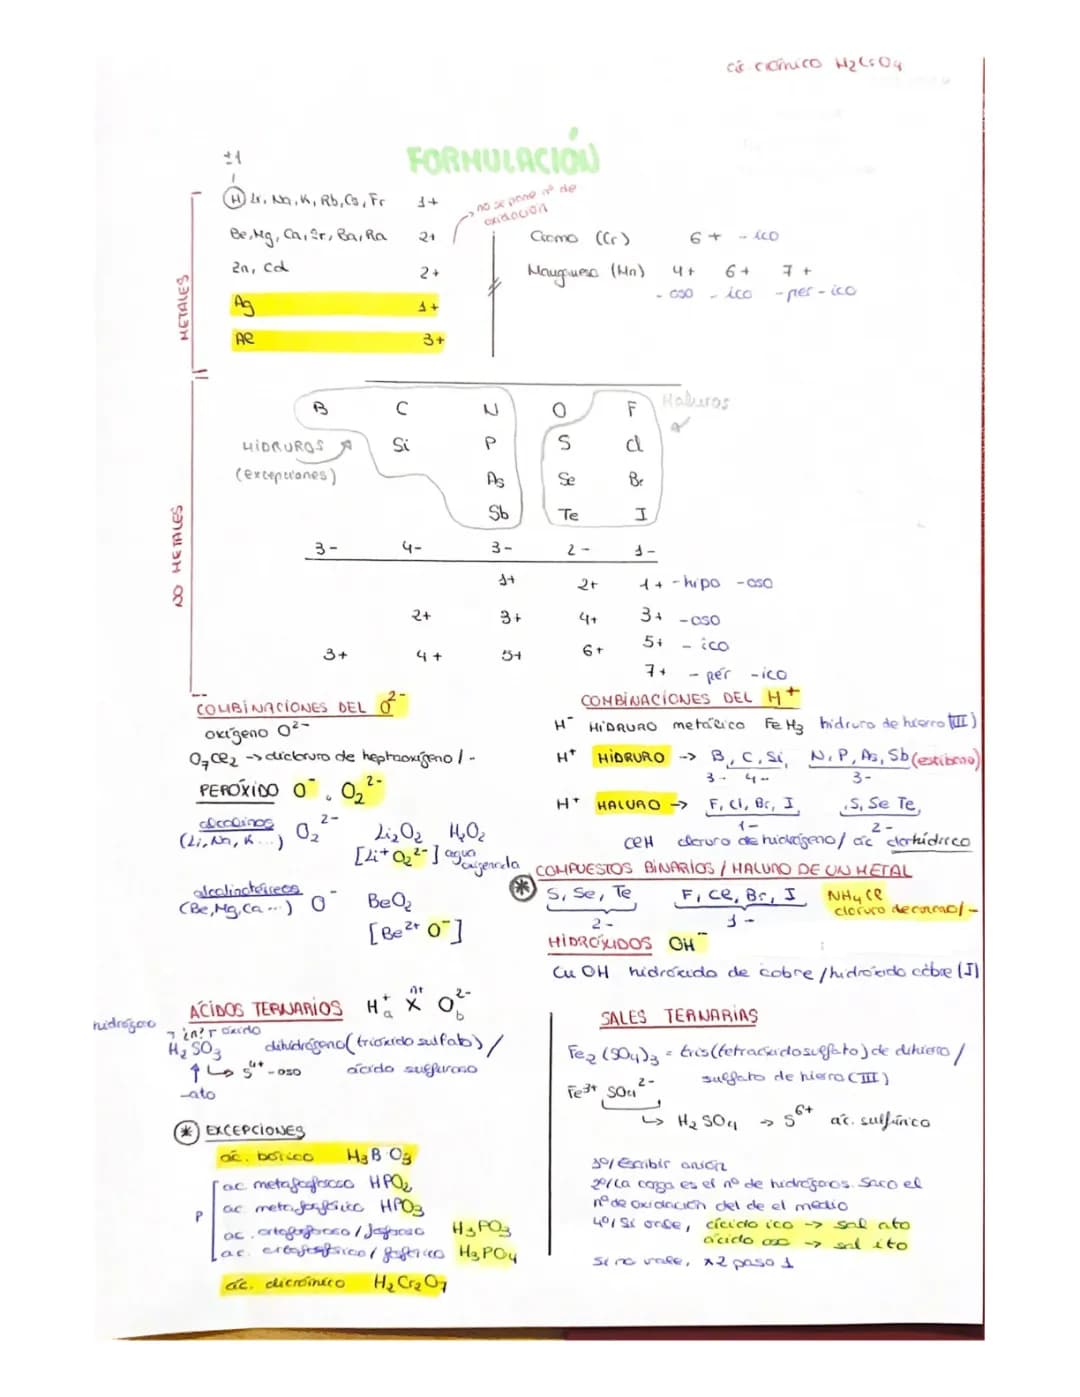 ác. crómico H2CrO4
FORMULACIÓN
±1
H Li, Na, K, Rb, Cs, Fr 1+
no se pone nº de
oxidación
Be, Mg, Ca, Sr, Ba, Ra 2+
Zn, Cd 2+
Ag 1+
Al 3+
METALES
Cromo (Cr) 6+ -ico
Manganeso (Mn) 4+ 6+ 7+
-oso -ico -per-ico
B C N O F Haluros
HIDRUROS Si P S Cl
(excepciones) As Se Br
Sb Te I
NO METALES
3- 4- 3- 2- 1-
1+ 2+ 1+ -hipo -oso
2+ 3+ 4+ 3+ -oso
5+ -ico
3+ 4+ 5+ 6+
7+ -per -ico
COMBINACIONES DEL O2-
oxígeno O2-
O7Cl2 -> dicloruro de heptaoxígeno / -
PERÓXIDO O-, O2 2-
alcalinos
(Li, Na, K...) O2 2- Li2O2 H2O2
[Li+ O2 2-] agua
oxigenada
alcalinotérreos
(Be, Mg, Ca...) O- BeO2
[Be2+ O-]
COMBINACIONES DEL H+
H- HIDRURO metálico FeH3 hidruro de hierro (III)
H+ HIDRURO -> B, C, Si, N, P, As, Sb (estibano)
3- 4- 3-
H+ HALURO -> F, Cl, Br, I, S, Se Te,
1- 2-
ClH cloruro de hidrógeno / ác clorhídrico
COMPUESTOS BINARIOS / HALURO DE UN METAL
* S, Se, Te F, Cl, Br, I NH4Cl
2- 1- cloruro de / -
HIDRÓXIDOS OH-
CuOH hidróxido de cobre / hidróxido cobre (I)
ÁCIDOS TERNARIOS Ha+ Xn+ Ob2-
hidrógeno
¿nº? óxido
H2SO3 dihidrógeno (trióxido sulfato) /
S4+ -oso ácido sulfuroso
-ato
* EXCEPCIONES
ác. bórico H3BO3
P
ac. metafosforoso HPO2
ac metafosfórico HPO3
ac. ortofosforoso / fosforoso H3PO3
ac. ortofosfórico / fosfórico H3PO4
ác. dicrómico H2Cr2O7
SALES TERNARIAS
Fe2(SO4)3 = tris(tetraoxidosulfato) de dihierro /
sulfato de hierro (III)
Fe3+ SO4 2-
-> H2SO4 -> S6+ ác. sulfúrico
1º/ Escribir anión
2º/ La carga es el nº de hidrógenos. Saco el
nº de oxidación del de el medio
4º/ Si onde, ácido ico -> sal ato
ácido oso -> sal ito
Si no vale, x2 paso 1